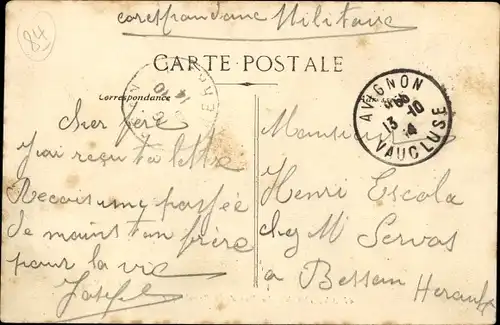 84
Correspondance Militaire
CARTE POSTALE
Correspondance
AVIGNON
13 -10
14
VAUCLUSE
14 10
Cher frère
J'ai reçu ta lettre
Recois une poignée
de mains ton frère
pour la vie
Joseph
Monsieur
Henri Escola
chez Mr Servas
a Bessan Herault